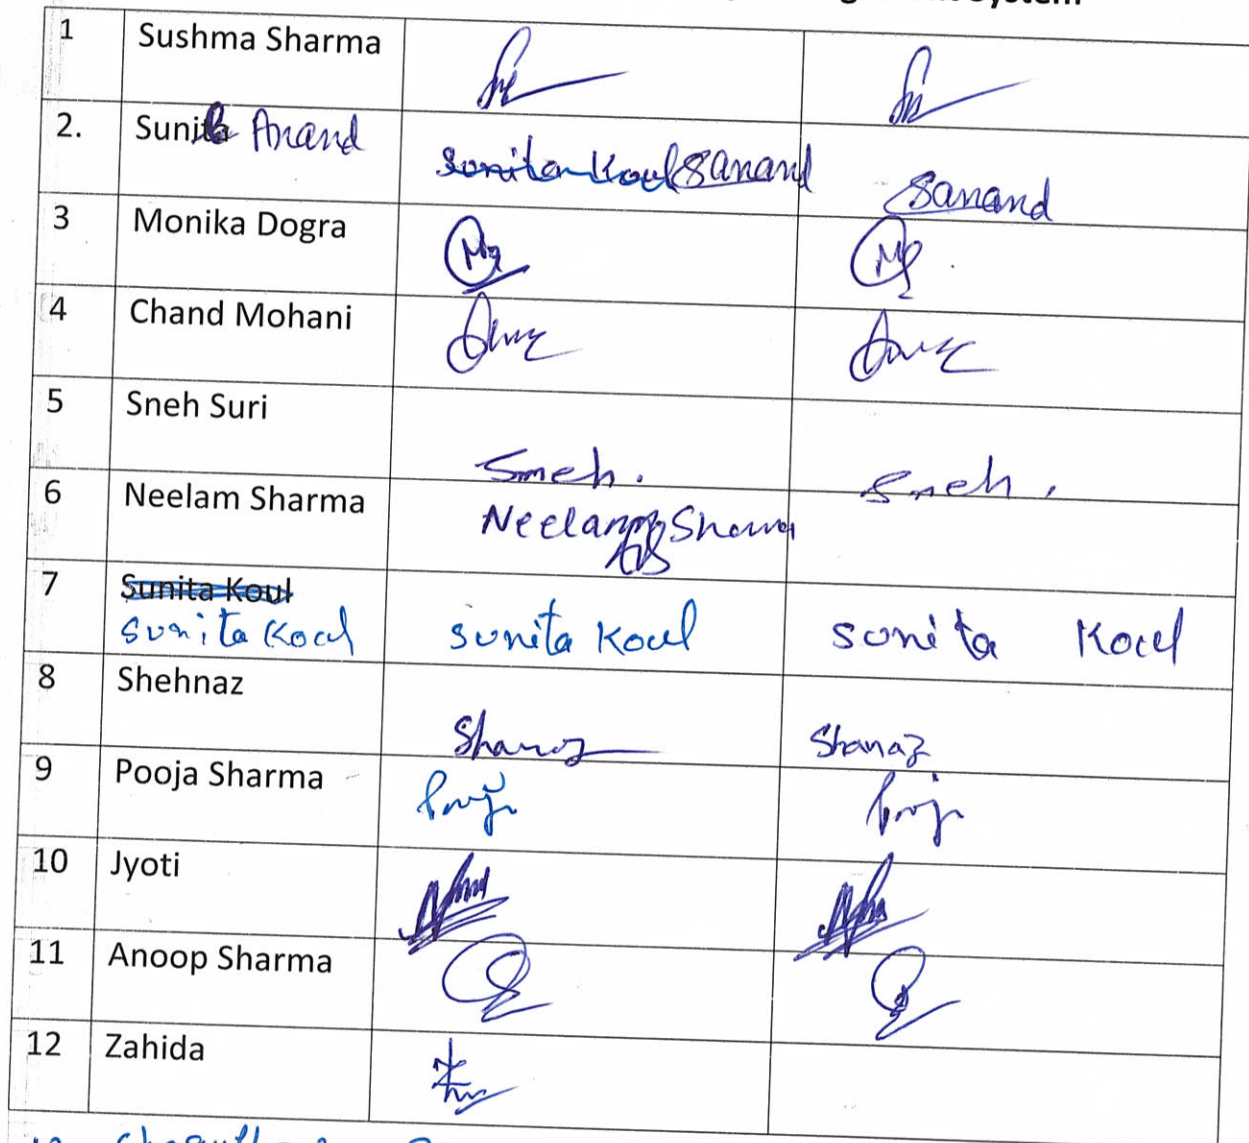 System
1 Sushma Sharma
2. Sunita Anand sunita Koul Sanand Sanand
3 Monika Dogra
4 Chand Mohani
5 Sneh Suri Sneh. Sneh.
6 Neelam Sharma Neelam Sharma
7 Sunita Koul
Sunita Koul sunita Koul sunita Koul
8 Shehnaz Shanaz Shanaz
9 Pooja Sharma Pooja Pooja
10 Jyoti
11 Anoop Sharma
12 Zahida